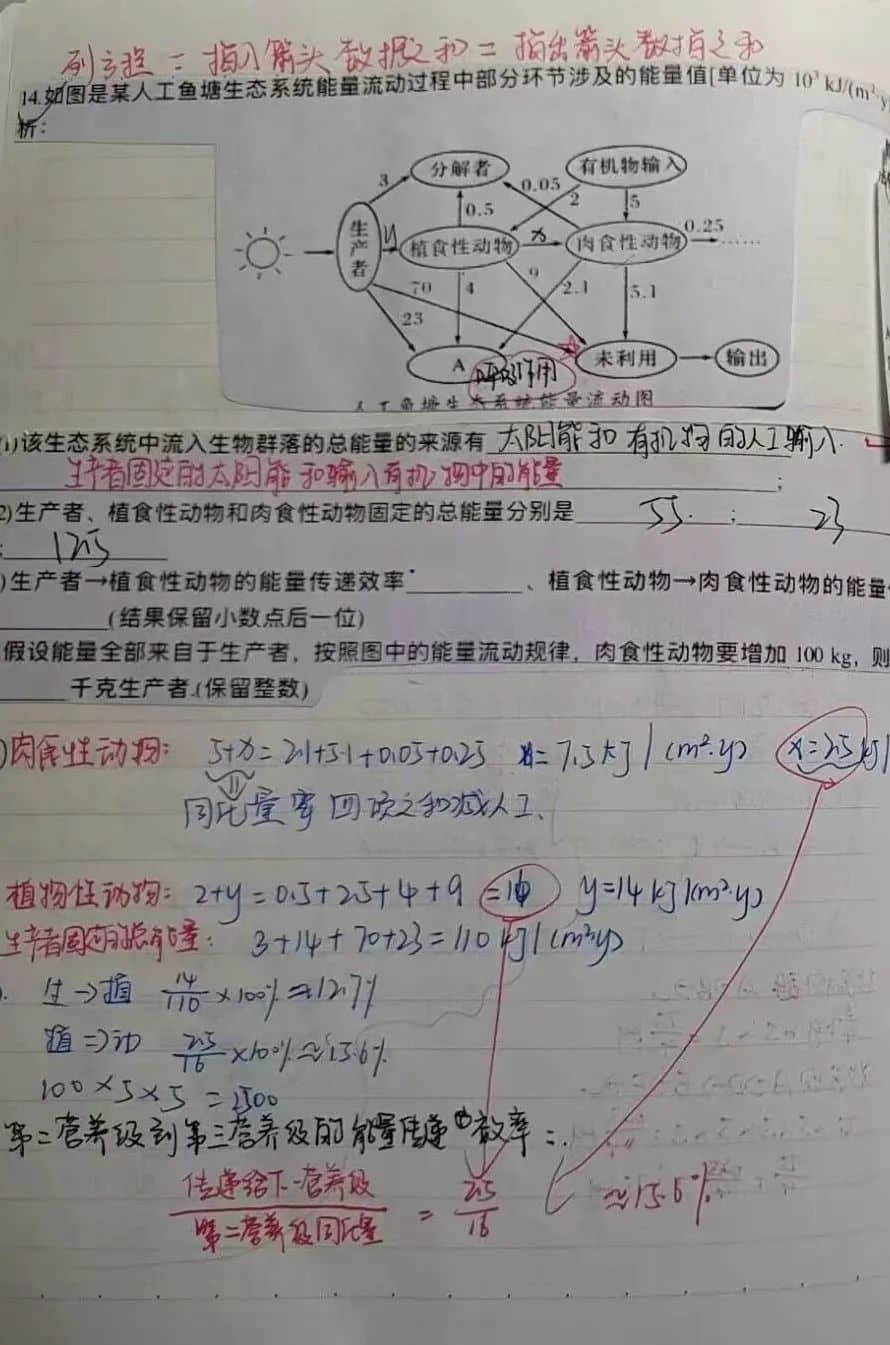 列方程 = 指入箭头数据之和 = 指出箭头数据之和
14.如图是某人工鱼塘生态系统能量流动过程中部分环节涉及的能量值[单位为 10³ kJ/(m²·y
析:
分解者 有机物输入
3 0.05 2 5
0.5
生产者 y 植食性动物 x 肉食性动物 0.25 ……
70 4 9 2.1 5.1
23
A 呼吸作用 未利用 输出
人工鱼塘生态系统能量流动图
(1)该生态系统中流入生物群落的总能量的来源有 太阳能和有机物的人工输入.
生产者固定的太阳能和输入有机物中的能量 ;
2)生产者、植食性动物和肉食性动物固定的总能量分别是 55. ; 23
; 125
)生产者→植食性动物的能量传递效率 、植食性动物→肉食性动物的能量
(结果保留小数点后一位)
假设能量全部来自于生产者，按照图中的能量流动规律，肉食性动物要增加 100 kg，则
千克生产者.(保留整数)
)肉食性动物: 5+x=2.1+5.1+0.05+0.25 =7.5 kJ/(m²·y) x=2.5 kJ/
同化量 四项之和减人工.
植物性动物: 2+y=0.5+2.5+4+9 =16 y=14 kJ/(m²·y)
生产者固定的总能量: 3+14+70+23=110 kJ/(m²y)
. 生→植 14/110 ×100%≈12.7%
植→动 2.5/16 ×100%≈15.6%
100×5×5=2500
第二营养级到第三营养级的能量传递效率=.
传递给下一营养级/第二营养级同化量 = 2.5/16 ≈15.6%